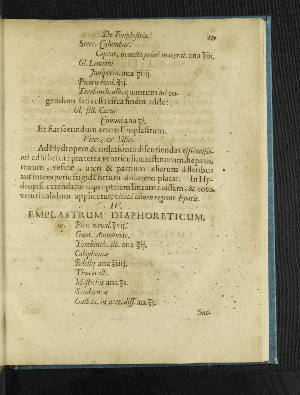 De Emplastris.
Sterc. Columbar.
Caprar. in aceto prius macerat. ana ℥iij.
Ol. Laurini
Juniperin. ana ℥iiij.
Picis naval. ℥ij.
Terebinth. alb. quantum ad co-
gendum satis est circa finem adde:
Ol. still. Carui
Cumini ana ʒj.
Et fiat secundum artem Emplastrum.
Vires, & Usus.
Ad Hydropem & inflationes discutiendas
ad hibetur: præterea ventriculi, intestinorum, hepatis,
renum, vesicæ, uteri & partium aliarum
aut intemperie frigida ortum dolorem placat. In Hy-
dropisi extendatur supra
ventri calidum applicetur, vitata tamen regione Epatis.
IV.
EMPLASTRUM DIAPHORETICUM.
℞. Picis naval. ℥vij.
Gum. Ammoniac.
Terebinth. alb. ana ℥vj.
Colophoniæ
Bdellij ana ℥iiij.
Thuris alb.
Mastichis ana ℥ij.
Sandaracæ
Galban. in acet. diss. ana ℥j.
Suc-